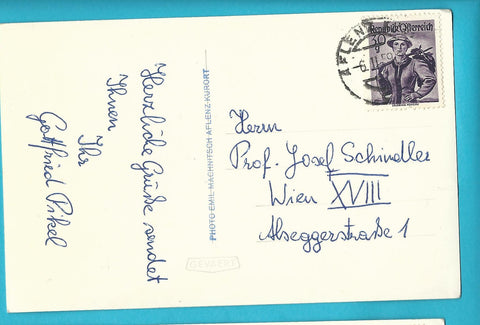 Herzliche Grüße sendet
Ihnen
Ihr
Gottfried Pikel
PHOTO EMIL MACHNITSCH AFLENZ-KURORT
GEVAERT
AFLENZ
Republik Österreich
30
Herrn
Prof. Josef Schindler
Wien XVIII
Alseggerstraße 1